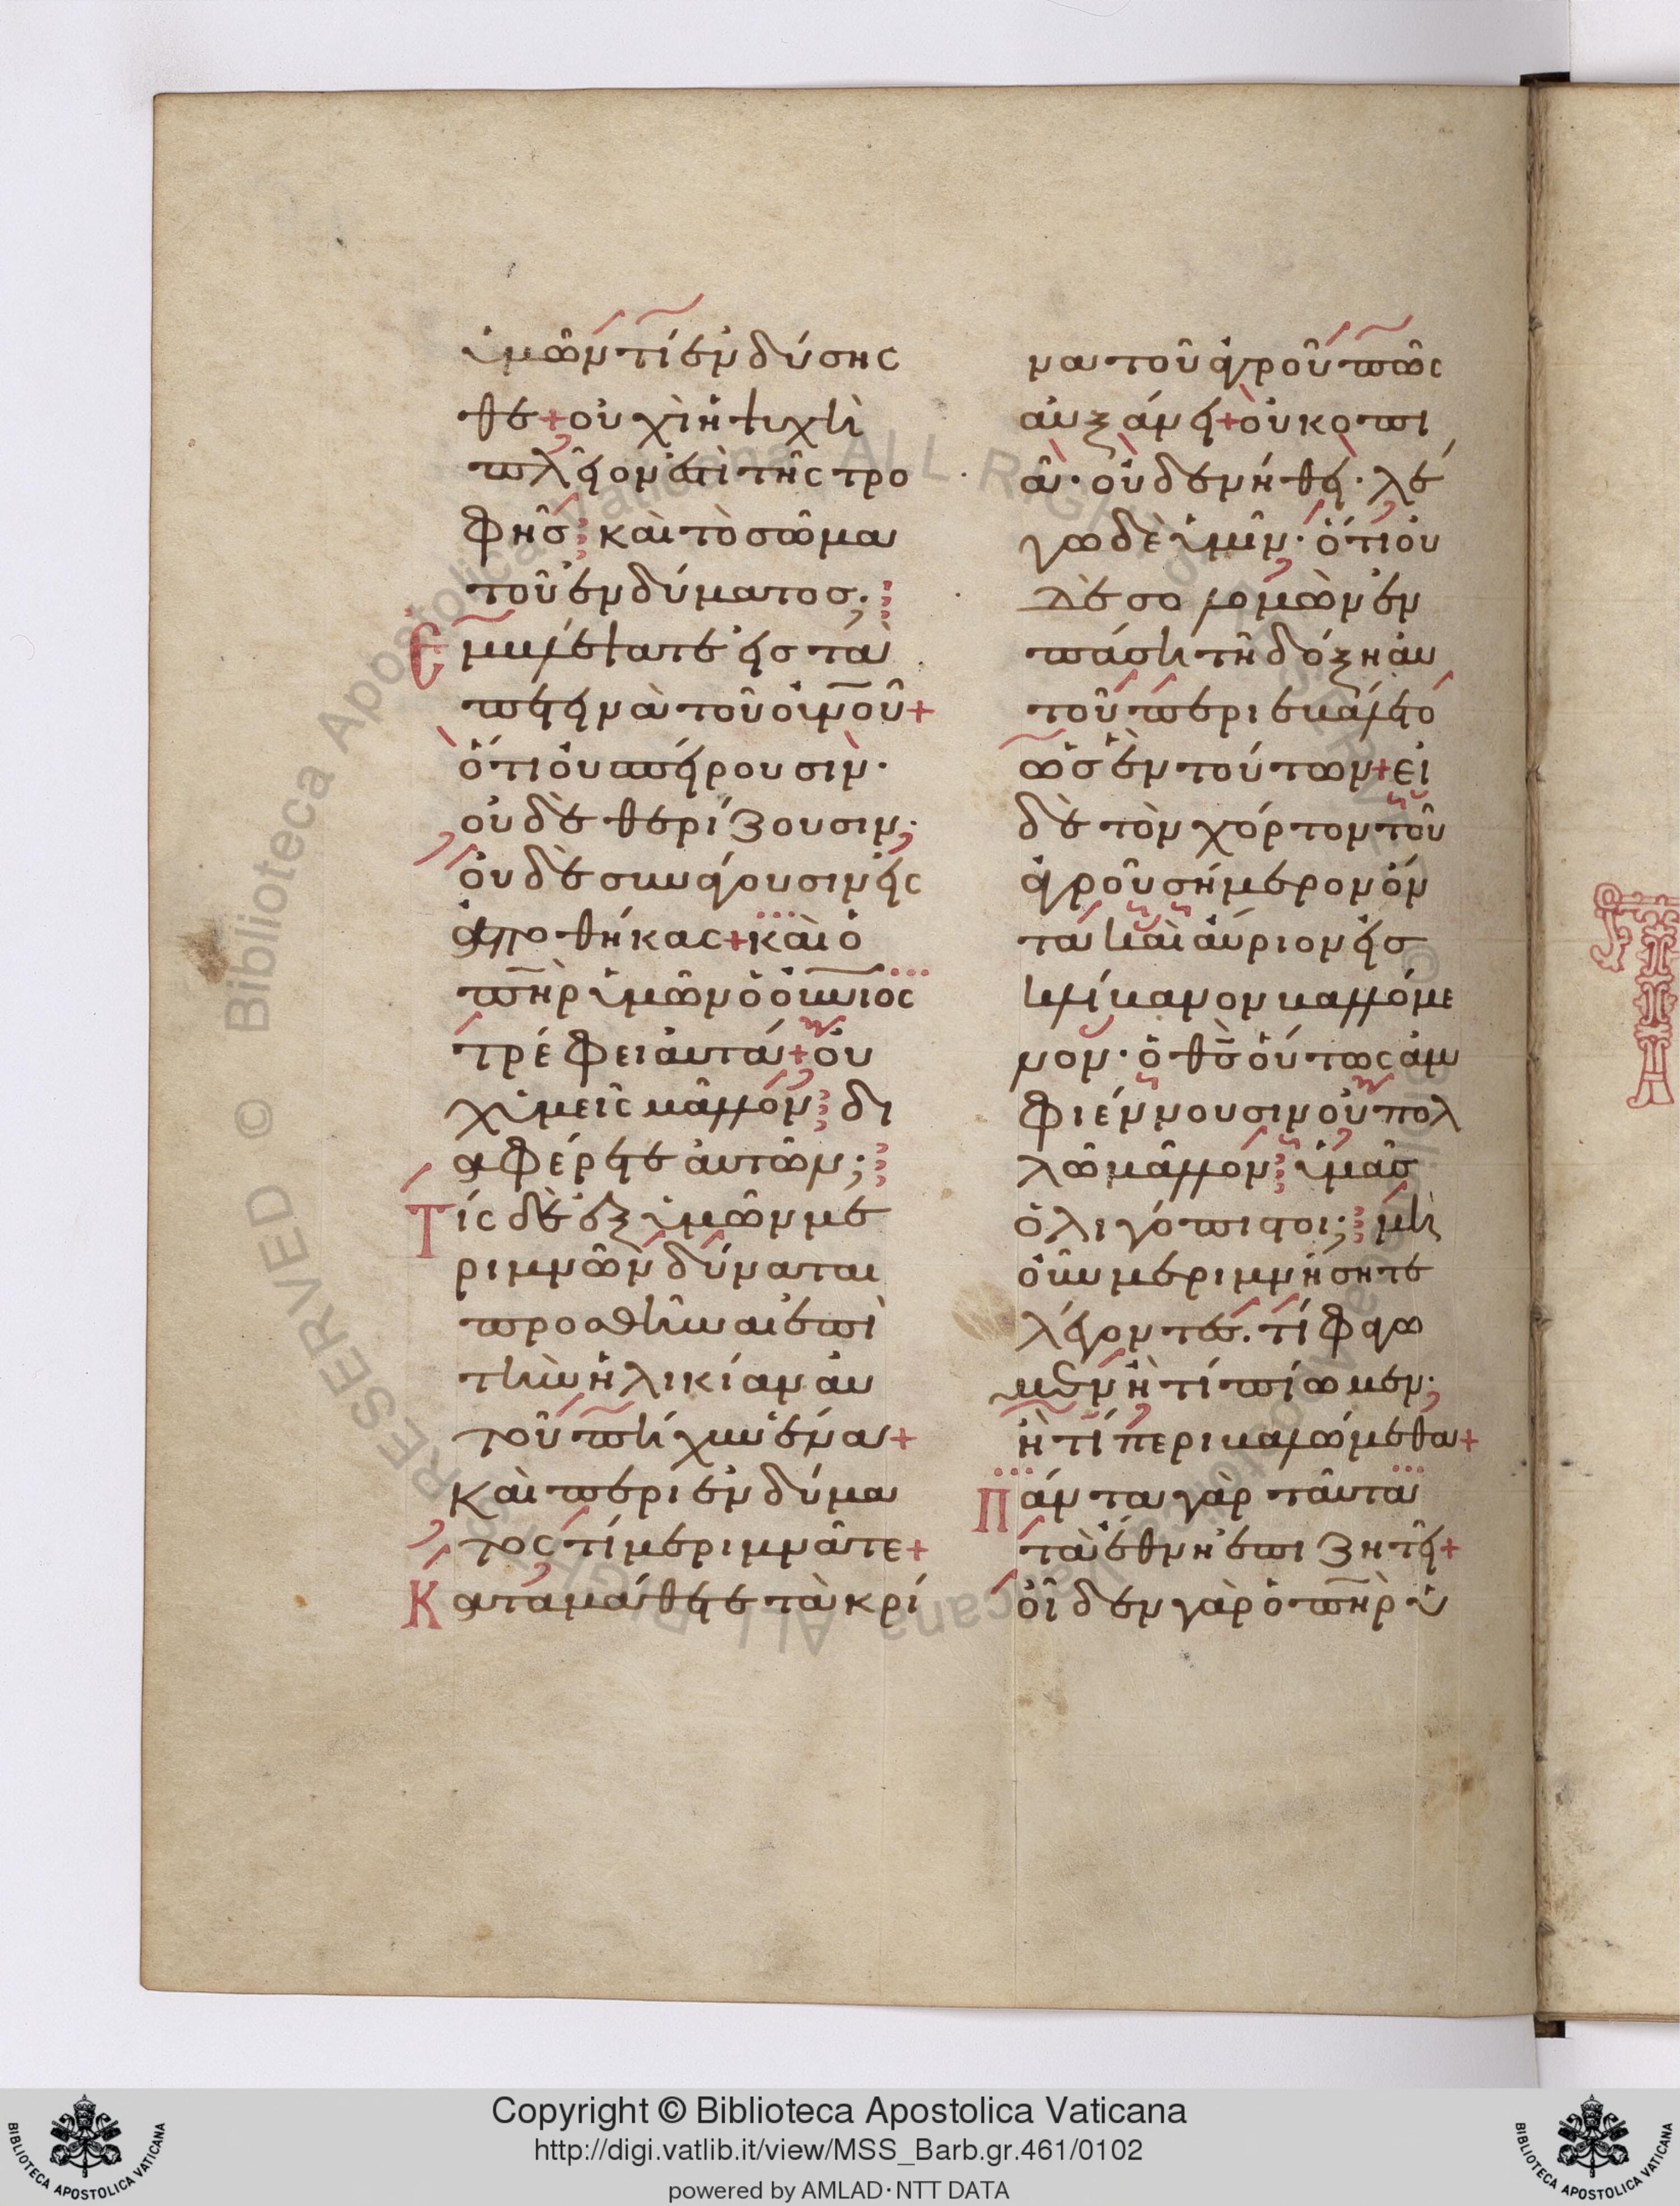 ὑμῶν τί ἐνδύσης
θε + οὐχὶ ἡ ψυχὴ
πλεῖον ἐστὶ τῆς τρο
φῆσ καὶ τὸ σῶμα
τοῦ ἐνδύματοσ·
Ἐμβλέψατε εἰσ τὰ
πετεινὰ τοῦ οὐνοῦ +
ὅτι οὐ σπείρουσιν·
οὐδὲ θερίζουσιν·
οὐδὲ συνάγουσιν εἰς
ἀποθήκας + καὶ ὁ
πηρ ὑμῶν ὁ οὐνιος
τρέφει αὐτά + οὐ
χ ὑμεῖς μᾶλλον δι
αφέρετε αὐτῶν;
Τίς δὲ ἐξ ὑμῶν με
ριμνῶν δύναται
προσθῆναι ἐπὶ
τὴν ἡλικίαν αὐ
τοῦ πῆχυν ἕνα +
καὶ περι ἐνδύμα
τος τί μεριμνᾶτε +
Καταμάθετε τὰ κρί
να τοῦ ἀγροῦ πῶς
αὐξάνει + οὐ κοπι
ᾶ· οὐδε νήθει· λέ
γω δὲ ὑμῖν· ὅτι οὐ
δὲ σολομὼν ἐν
πάσῃ τῆ δόξη αὐ
τοῦ περιεβάλετο
ὡσ ἓν τούτων + εἰ
δὲ τὸν χόρτον τοῦ
ἀγροῦ σήμερον ὄν
τα καὶ αὔριον εἰσ
κλίβανον βαλλόμε
νον· ὁ θσ οὕτως ἀμ
φιέννουσιν οὐ πολ
λῶ μᾶλλον ὑμᾶσ
ὀλιγόπιστοι; μὴ
οὖν μεριμνήσητε
λέγοντεσ. τί φάγω
μεν ἢ τί πίωμεν·
ἢ τί περιβαλώμεθα +
Πάντα γὰρ ταῦτα
τὰ ἔθνη ἐπιζητεῖ +
οἶδεν γὰρ ὁ πηρ ὑ
Copyright © Biblioteca Apostolica Vaticana
http://digi.vatlib.it/view/MSS_Barb.gr.461/0102
powered by AMLAD·NTT DATA